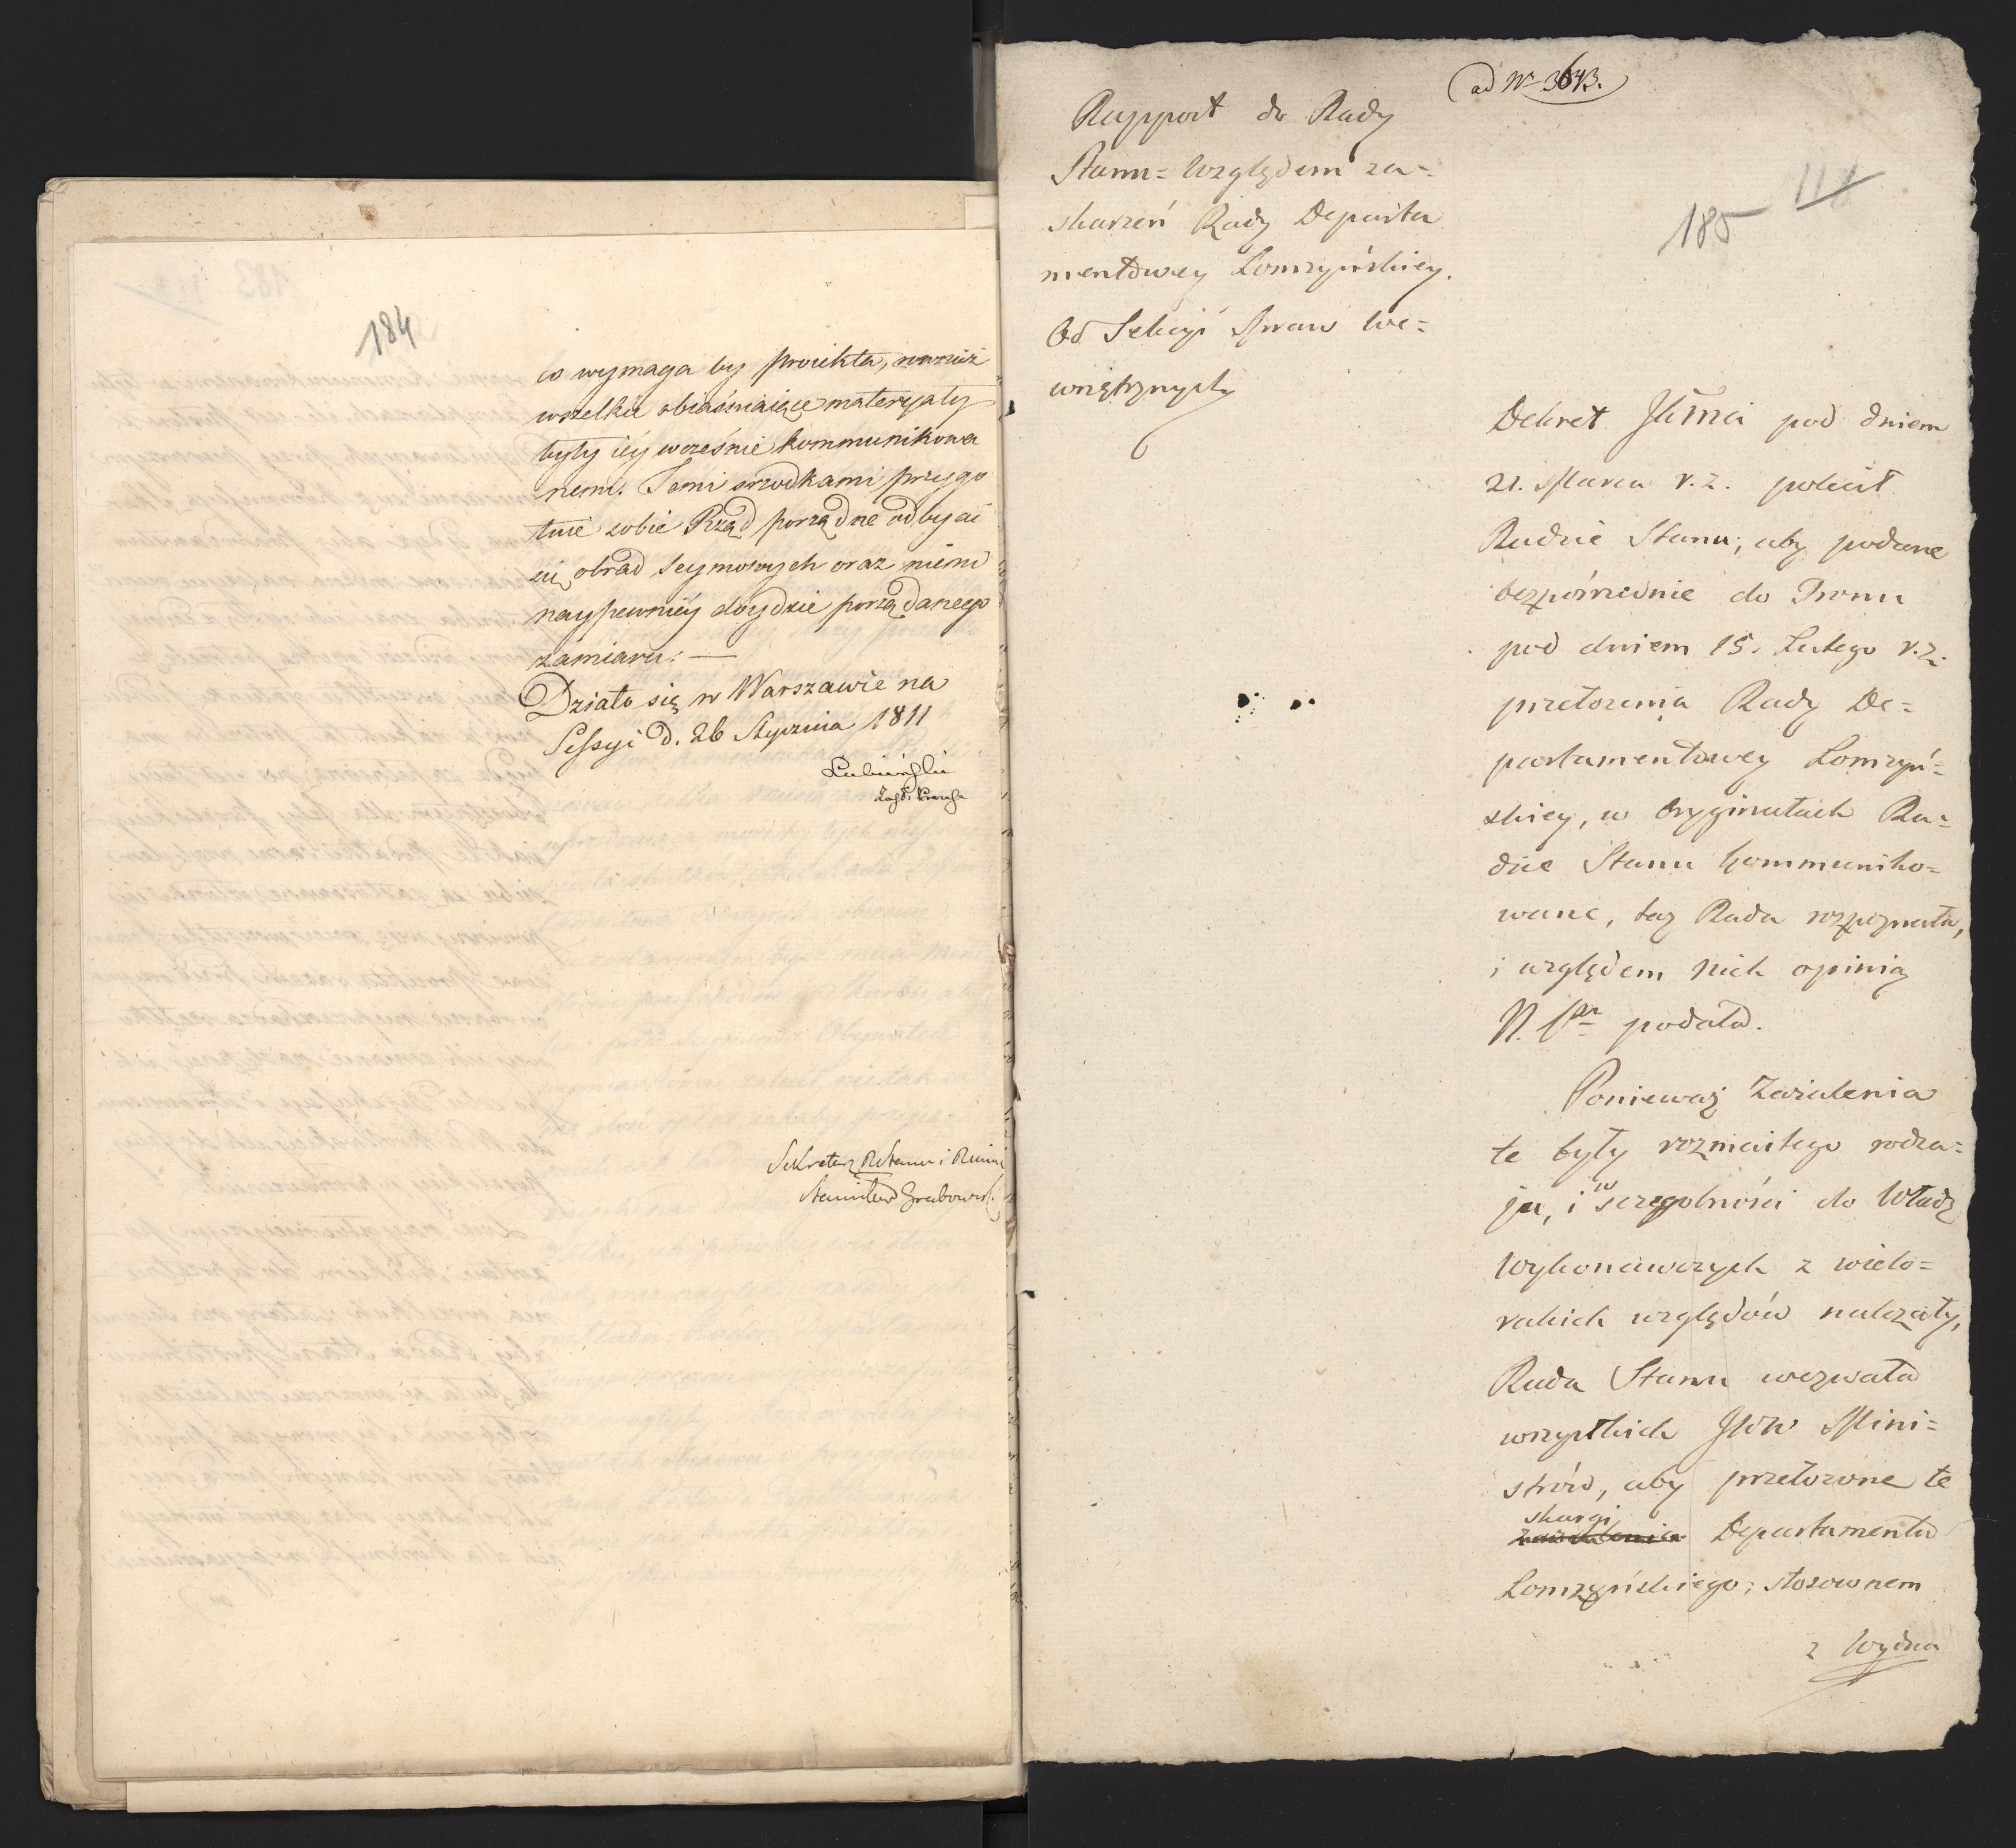 184
co wymaga by proiekta, rownież
wszelkie obiaśniaiące materyały
były iéy wcześnie kommunikowa
nemi. Temi srzodkami przygo
tuie sobie Rząd porządne odbycie
się obrad Seymowych oraz niemi
naypewniéy doydzie porządanego
zamiaru. —
Działo się w Warszawie na
Sessyi d. 26 Stycznia 1811
Lubieński
Sekretarz RStanu i
Stanisław Grabowski
ad No 3643.
185
Rapport do Rady
Stanu = względem za=
skarzeń Rady Departa
mentowey Łomżyńskiey.
Od Sekcyi Spraw We=
wnętrznych
Dekret JKMci pod dniem
21. Marca r. z. polecił
Radzie Stanu, aby podane
bezpośrednie do Tronu
pod dniem 15. Lutego r. z.
przełożenia Rady De=
partamentowey Łomżyń=
skiey, w oryginałach Ra=
dzie Stanu kommuniko=
wane, taż Rada rozpoznała,
i względem nich opinią
podała.
Ponieważ Zażalenia
te były rozmaitego rodza=
ju, i w szczegolności do Władz
Wykonawczych z wielo=
rakich względów należały,
Rada Stanu wezwała
wszystkich JWW Mini=
strów, aby przełożone te
skargi
zażalenia Departamentu
Łomżyńskiego, stosownem
z Wydzia